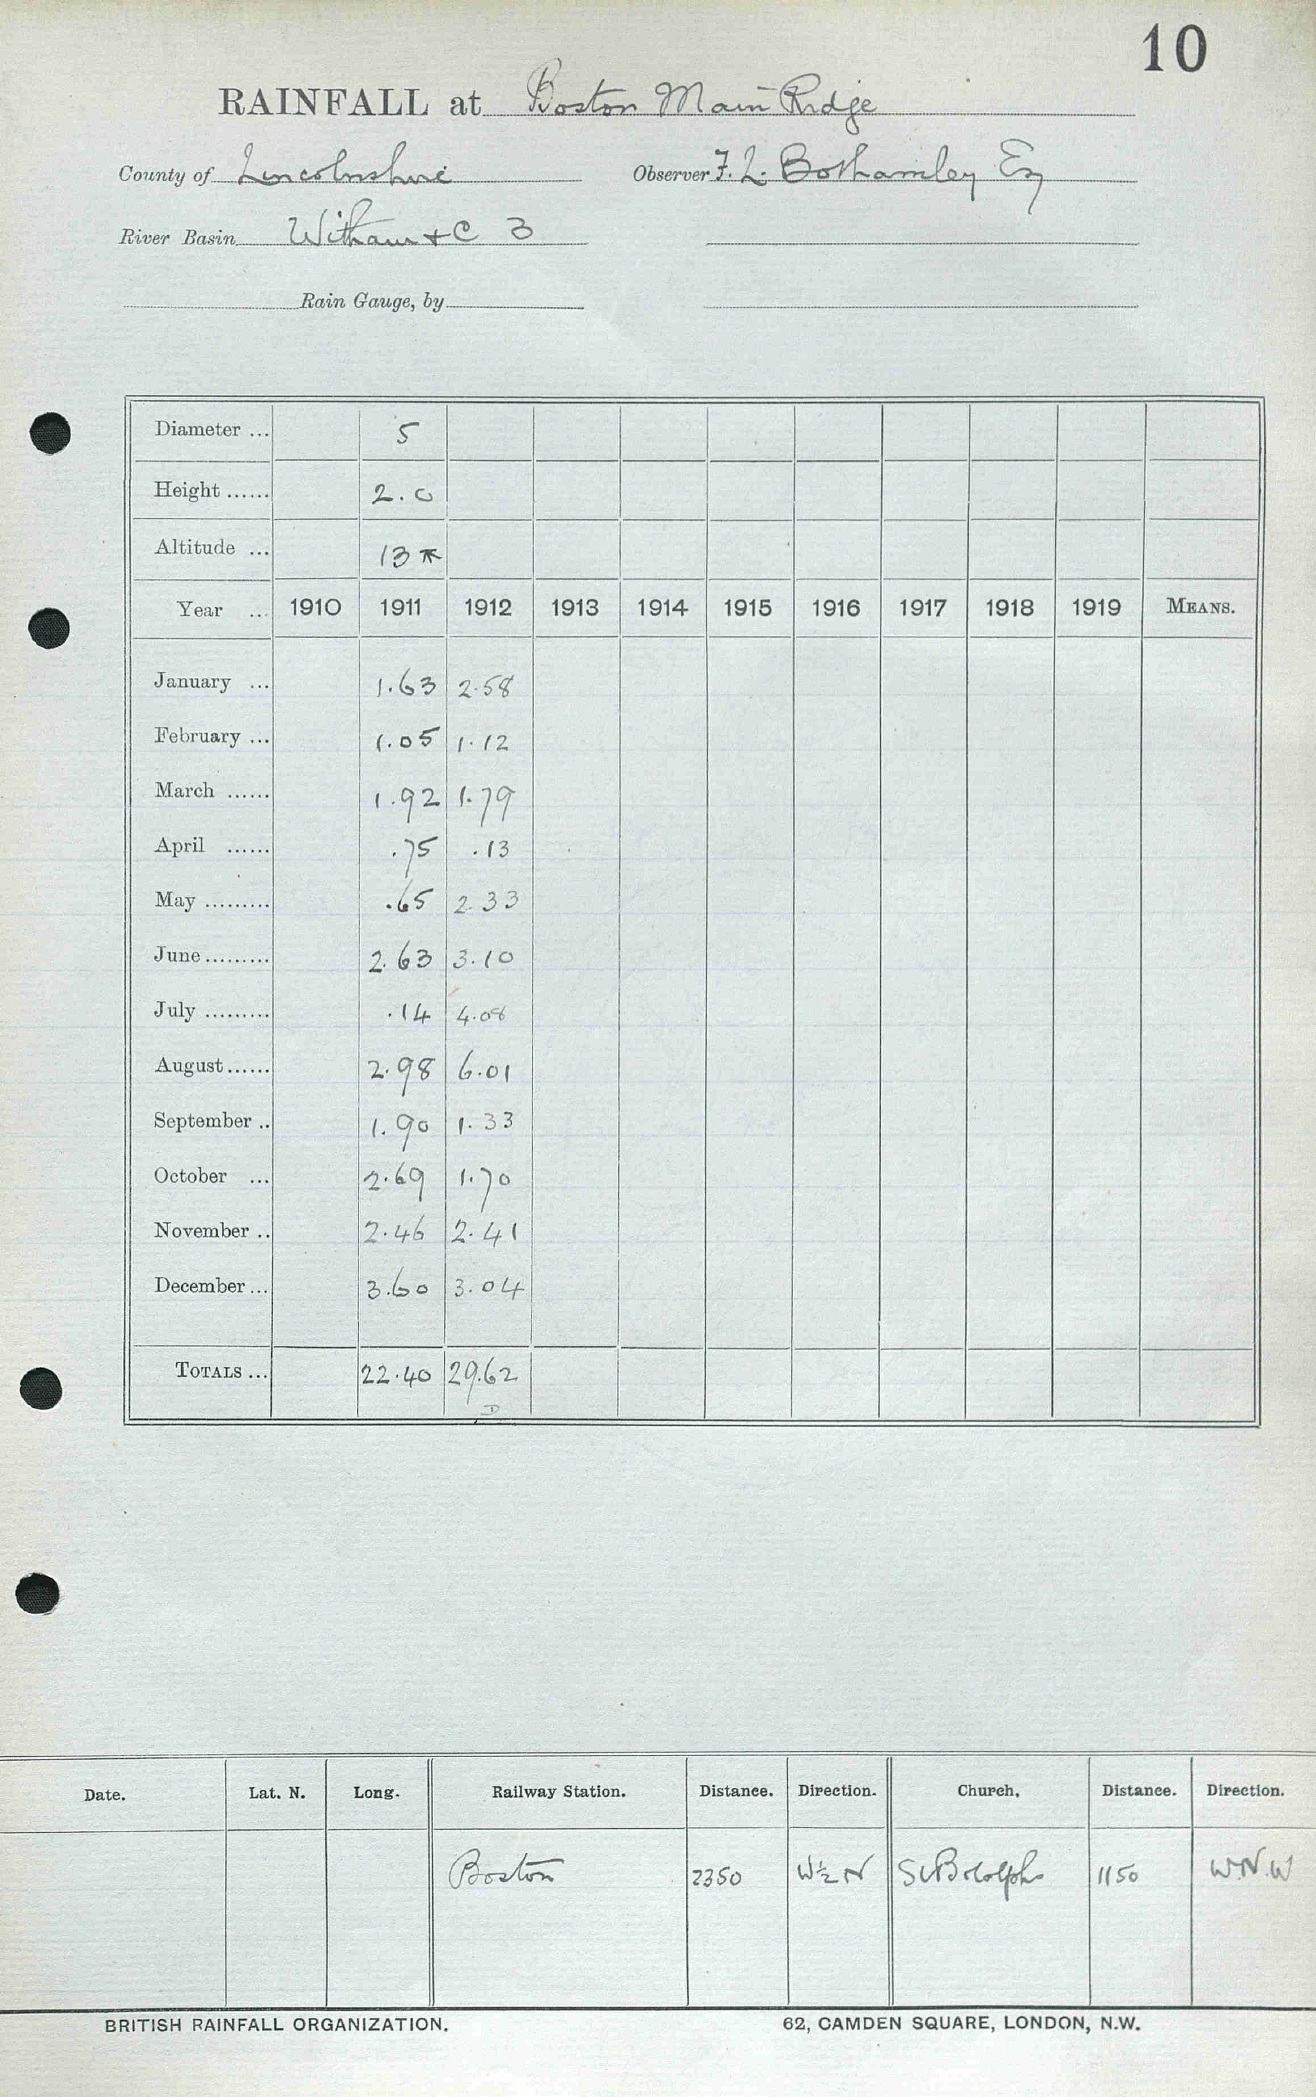 10
RAINFALL at Boston Main Ridge
County of Lincolnshire Observer F. L. Bothamley Esq
River Basin Witham + C 3
Rain Gauge, by
Diameter ... 5
Height ...... 2.0
Altitude ... 13 *
Year ... 1910 1911 1912 1913 1914 1915 1916 1917 1918 1919 MEANS.
January ... 1.63 2.58
February ... 1.05 1.12
March ...... 1.92 1.79
April ...... .75 .13
May ......... .65 2.33
June ......... 2.63 3.10
July ......... .14 4.08
August ...... 2.98 6.01
September .. 1.90 1.33
October ... 2.69 1.70
November .. 2.46 2.41
December ... 3.60 3.04
TOTALS ... 22.40 29.62
D
Date. Lat. N. Long. Railway Station. Distance. Direction. Church. Distance. Direction.
Boston 2350 W½N St Botolphs 1150 W.N.W
BRITISH RAINFALL ORGANIZATION. 62, CAMDEN SQUARE, LONDON, N.W.